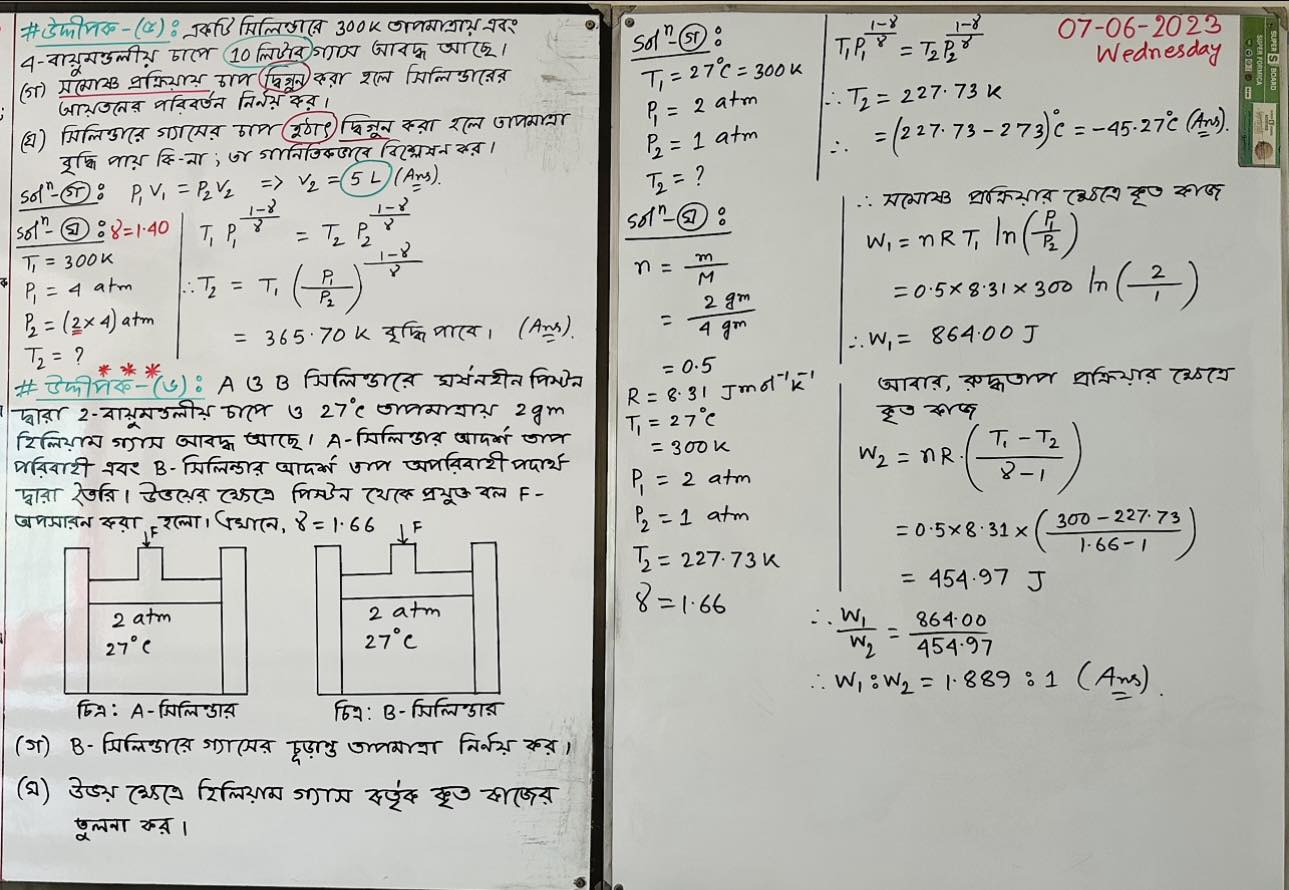 # উদ্দীপক-(৫) : একটি সিলিন্ডারে 300K তাপমাত্রায় এবং
4-বায়ুমন্ডলীয় চাপে 10 লিটার গ্যাস আবদ্ধ আছে।
(গ) সমোষ্ণ প্রক্রিয়ায় চাপ দ্বিগুন করা হলে সিলিন্ডারের
আয়তনের পরিবর্তন নির্ণয় কর।
(ঘ) সিলিন্ডারে গ্যাসের চাপ হঠাৎ দ্বিগুন করা হলে তাপমাত্রা
বৃদ্ধি পায় কি-না ; তা গাণিতিকভাবে বিশ্লেষন কর।
Solⁿ-(গ) : P₁V₁ = P₂V₂ => V₂ = 5 L (Ans).
Solⁿ-(ঘ) : γ=1.40
T₁ = 300K
P₁ = 4 atm
P₂ = (2×4) atm
T₂ = ?
T₁ P₁^((1-γ)/γ) = T₂ P₂^((1-γ)/γ)
∴ T₂ = T₁ (P₁/P₂)^((1-γ)/γ)
= 365.70 K বৃদ্ধি পাবে। (Ans).
* * *
# উদ্দীপক-(৬) : A ও B সিলিন্ডারে ঘর্ষনহীন পিস্টন
দ্বারা 2-বায়ুমন্ডলীয় চাপে ও 27°C তাপমাত্রায় 2gm
হিলিয়াম গ্যাস আবদ্ধ আছে। A-সিলিন্ডার আদর্শ তাপ
পরিবাহী এবং B-সিলিন্ডার আদর্শ তাপ অপরিবাহী পদার্থ
দ্বারা তৈরি। উভয়ের ক্ষেত্রে পিস্টন থেকে প্রযুক্ত বল F-
অপসারন করা হলো। এখানে, γ = 1.66
F
2 atm
27°C
চিত্র: A-সিলিন্ডার
F
2 atm
27°C
চিত্র: B-সিলিন্ডার
(গ) B-সিলিন্ডারে গ্যাসের চূড়ান্ত তাপমাত্রা নির্নয় কর।
(ঘ) উভয় ক্ষেত্রে হিলিয়াম গ্যাস কর্তৃক কৃত কাজের
তুলনা কর।
Solⁿ-(গ) :
T₁ = 27°C = 300K
P₁ = 2 atm
P₂ = 1 atm
T₂ = ?
T₁P₁^((1-γ)/γ) = T₂P₂^((1-γ)/γ)
∴ T₂ = 227.73 K
∴ = (227.73-273)°C = -45.27°C (Ans).
07-06-2023
Wednesday
SUPER BOARD
SUPER FORMICA
Solⁿ-(ঘ) :
n = m/M
= 2 gm/4 gm
= 0.5
R = 8.31 Jmol⁻¹K⁻¹
T₁ = 27°C
= 300K
P₁ = 2 atm
P₂ = 1 atm
T₂ = 227.73K
γ = 1.66
∴ সমোষ্ণ প্রক্রিয়ার ক্ষেত্রে কৃত কাজ
W₁ = nRT₁ ln(P₁/P₂)
= 0.5×8.31×300 ln(2/1)
∴ W₁ = 864.00 J
আবার, রুদ্ধতাপ প্রক্রিয়ার ক্ষেত্রে
কৃত কাজ
W₂ = nR.((T₁-T₂)/(γ-1))
= 0.5×8.31×((300-227.73)/(1.66-1))
= 454.97 J
∴ W₁/W₂ = 864.00/454.97
∴ W₁:W₂ = 1.889 : 1 (Ans).